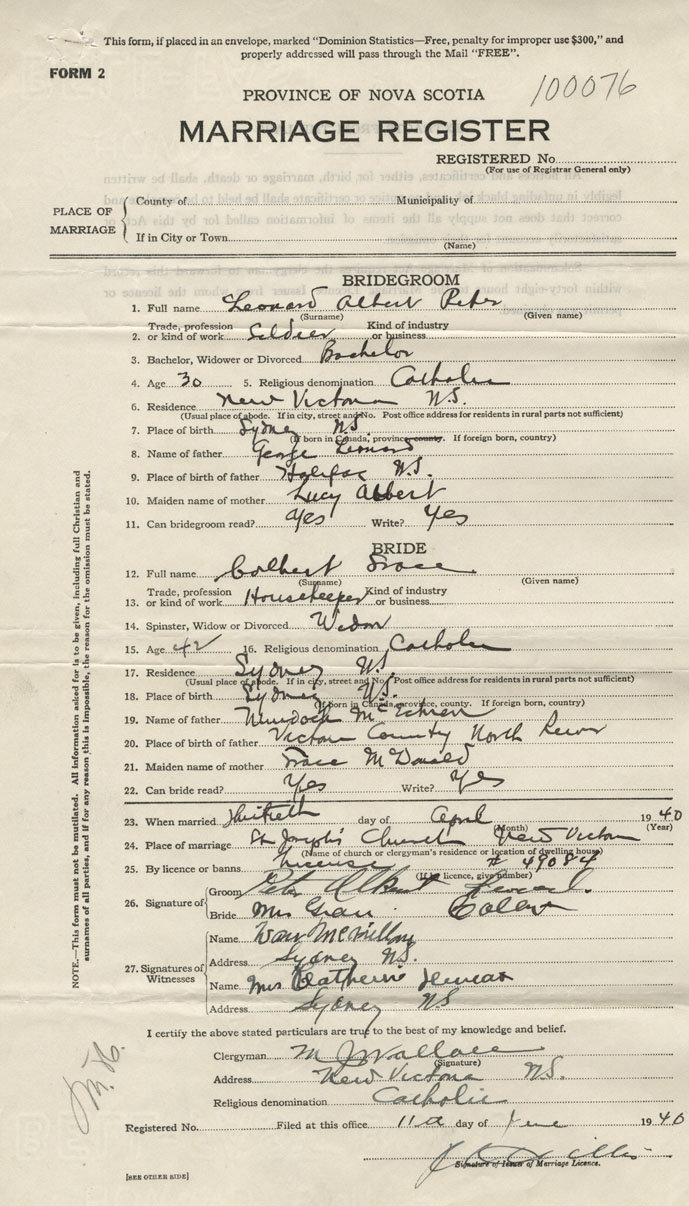 This form, if placed in an envelope, marked "Dominion Statistics—Free, penalty for improper use $300," and
properly addressed will pass through the Mail "FREE".
FORM 2
100076
PROVINCE OF NOVA SCOTIA
MARRIAGE REGISTER
REGISTERED No.
(For use of Registrar General only)
PLACE OF MARRIAGE
County of Municipality of
If in City or Town
(Name)
BRIDEGROOM
1. Full name Leonard Albert Peter
(Surname) (Given name)
2. Trade, profession or kind of work Soldier Kind of industry or business
3. Bachelor, Widower or Divorced Bachelor
4. Age 30 5. Religious denomination Catholic
6. Residence New Victoria N.S.
(Usual place of abode. If in city, street and No. Post office address for residents in rural parts not sufficient)
7. Place of birth Sydney N.S.
(If born in Canada, province, county. If foreign born, country)
8. Name of father George Leonard
9. Place of birth of father Halifax N.S.
10. Maiden name of mother Lucy Abbert
11. Can bridegroom read? Yes Write? Yes
BRIDE
12. Full name Colbert Grace
(Surname) (Given name)
13. Trade, profession or kind of work Housekeeper Kind of industry or business
14. Spinster, Widow or Divorced Widow
15. Age 42 16. Religious denomination Catholic
17. Residence Sydney N.S.
(Usual place of abode. If in city, street and No. Post office address for residents in rural parts not sufficient)
18. Place of birth Sydney N.S.
(If born in Canada, province, county. If foreign born, country)
19. Name of father Murdock McEchren
20. Place of birth of father Victoria County North River
21. Maiden name of mother Grace McDonald
22. Can bride read? Yes Write? Yes
23. When married thirtieth day of April 1940
(Month) (Year)
24. Place of marriage St Joseph's Church New Victoria
(Name of church or clergyman's residence or location of dwelling house)
25. By licence or banns License # 49084
(If by licence, give number)
26. Signature of
Groom Peter Albert Leonard.
Bride Mrs Grace Colbert
27. Signatures of Witnesses
Name McMillan
Address Sydney N.S.
Name Mrs Catherine
Address Sydney NS
I certify the above stated particulars are true to the best of my knowledge and belief.
Clergyman M J Wallace
(Signature)
Address New Victoria N.S.
Religious denomination Catholic
Registered No. Filed at this office 11th day of June 1940
Signature of Issuer of Marriage Licence.
[SEE OTHER SIDE]
NOTE.—This form must not be mutilated. All information asked for is to be given, including full Christian and
surnames of all parties, and if for any reason this is impossible, the reason for the omission must be stated.